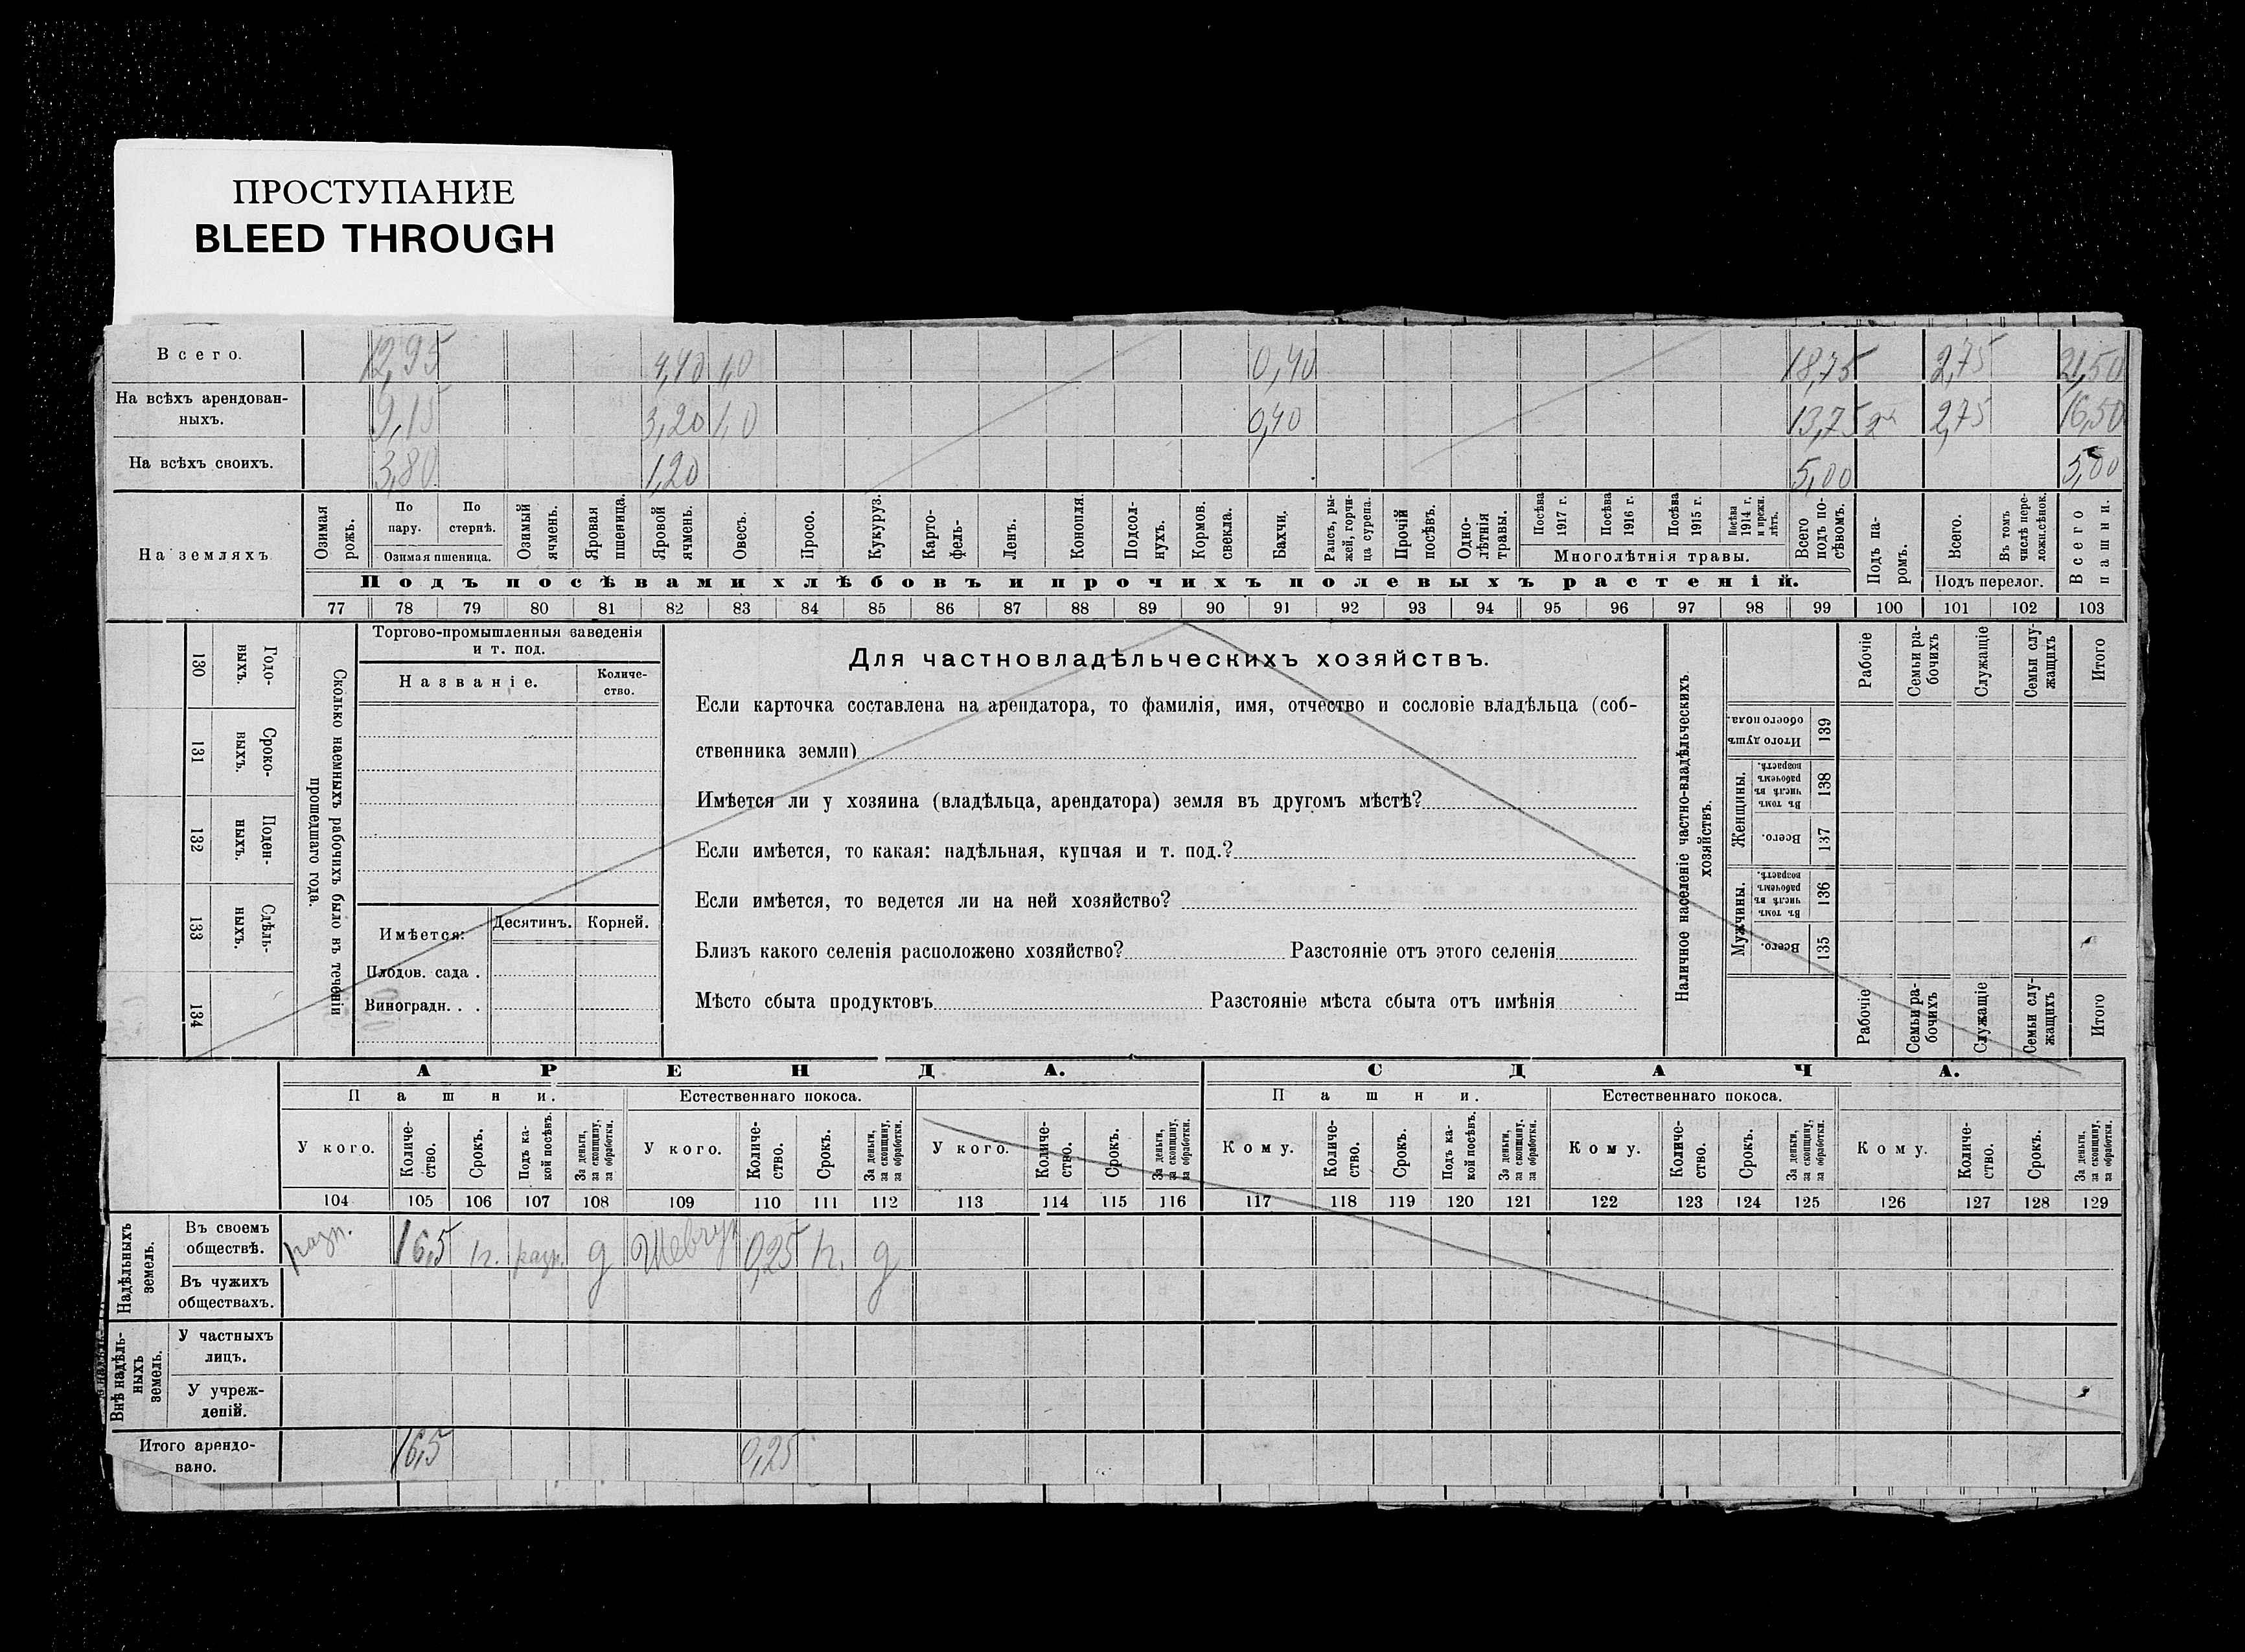 ПРОСТУПАНИЕ
BLEED THROUGH
Всего. 12,95 4,40 1,0 0,40 18,75 2,75 21,50
На всѣхъ арендован-
ныхъ. 9,15 3,20 1,0 0,40 13,75 2,75 16,50
На всѣхъ своихъ. 3,80 1,20 5,00 5,00
На земляхъ
Озимая рожь.
По пару.
По стернѣ.
Озимая пшеница.
Озимый ячмень.
Яровая пшеница.
Яровой ячмень.
Овесъ.
Просо.
Кукуруз.
Карто-
фель-
Ленъ.
Конопля.
Подсол-
нухъ.
Кормов.
свекла.
Бахчи.
Рапсъ, ры-
жей, горчи-
ца сурепа.
Прочій
посѣвъ.
Одно-
лѣтнія
травы.
Посѣва 1917 г.
Посѣва 1916 г.
Посѣва 1915 г.
Посѣва 1914 г. и прежн. лѣтъ.
Многолѣтнія травы.
Всего
подъ по-
сѣвомъ.
Подъ па-
ромъ.
Всего.
Въ томъ
числѣ пере-
ложн.сѣнок.
Подъ перелог.
Всего
пашни.
Подъ посѣвами хлѣбовъ и прочихъ полевыхъ растеній.
77 78 79 80 81 82 83 84 85 86 87 88 89 90 91 92 93 94 95 96 97 98 99 100 101 102 103
130 Годо-
ныхъ.
131 Сроко-
ныхъ.
132 Поден-
ныхъ.
133 Сдѣль-
ныхъ.
134
Сколько наемныхъ рабочихъ было въ теченіи
прошедшаго года.
Торгово-промышленныя заведенія
и т. под.
Названіе.
Количе-
ство.
Имѣется:
Десятинъ. Корней.
Плодов. сада .
Виноградн. . .
Для частновладѣльческихъ хозяйствъ.
Если карточка составлена на арендатора, то фамилія, имя, отчество и сословіе владѣльца (соб-
ственника земли)
Имѣется ли у хозяина (владѣльца, арендатора) земля въ другомъ мѣстѣ?
Если имѣется, то какая: надѣльная, купчая и т. под.?
Если имѣется, то ведется ли на ней хозяйство?
Близъ какого селенія расположено хозяйство? Разстояніе отъ этого селенія
Мѣсто сбыта продуктовъ Разстояніе мѣста сбыта отъ имѣнія
Наличное населеніе частно-владѣльческихъ
хозяйствъ.
Рабочіе
Семьи ра-
бочихъ
Служащіе
Семьи слу-
жащихъ
Итого
Итого душъ
обоего пола.
139
Женщины.
Въ томъ
числѣ въ
рабочемъ
возрастѣ.
138
Всего.
137
Мужчины.
Въ томъ
числѣ въ
рабочемъ
возрастѣ.
136
Всего.
135
Рабочіе
Семьи ра-
бочихъ
Служащіе
Семьи слу-
жащихъ
Итого
АРЕНДА. СДАЧА.
Пашни. Естественнаго покоса. Пашни. Естественнаго покоса.
У кого. Количе-
ство. Срокъ. Подъ ка-
кой посѣвъ. За деньги,
за скопщину,
за обработки.
У кого. Количе-
ство. Срокъ. За деньги,
за скопщину,
за обработки.
У кого. Количе-
ство. Срокъ. За деньги,
за скопщину,
за обработки.
Кому. Количе-
ство. Срокъ. Подъ ка-
кой посѣвъ. За деньги,
за скопщину,
за обработки.
Кому. Количе-
ство. Срокъ. За деньги,
за скопщину,
за обработки.
Кому. Количе-
ство. Срокъ. За деньги,
за скопщину,
за обработки.
104 105 106 107 108 109 110 111 112 113 114 115 116 117 118 119 120 121 122 123 124 125 126 127 128 129
Надѣльныхъ
земель.
Въ своемъ
обществѣ. разн. 16,5 1г. разн. д Шевчук 0,25 1г. д
Въ чужихъ
обществахъ.
Внѣ надѣль-
ныхъ
земель.
У частныхъ
лицъ.
У учреж-
деній.
Итого арендо-
вано. 16,5 0,25